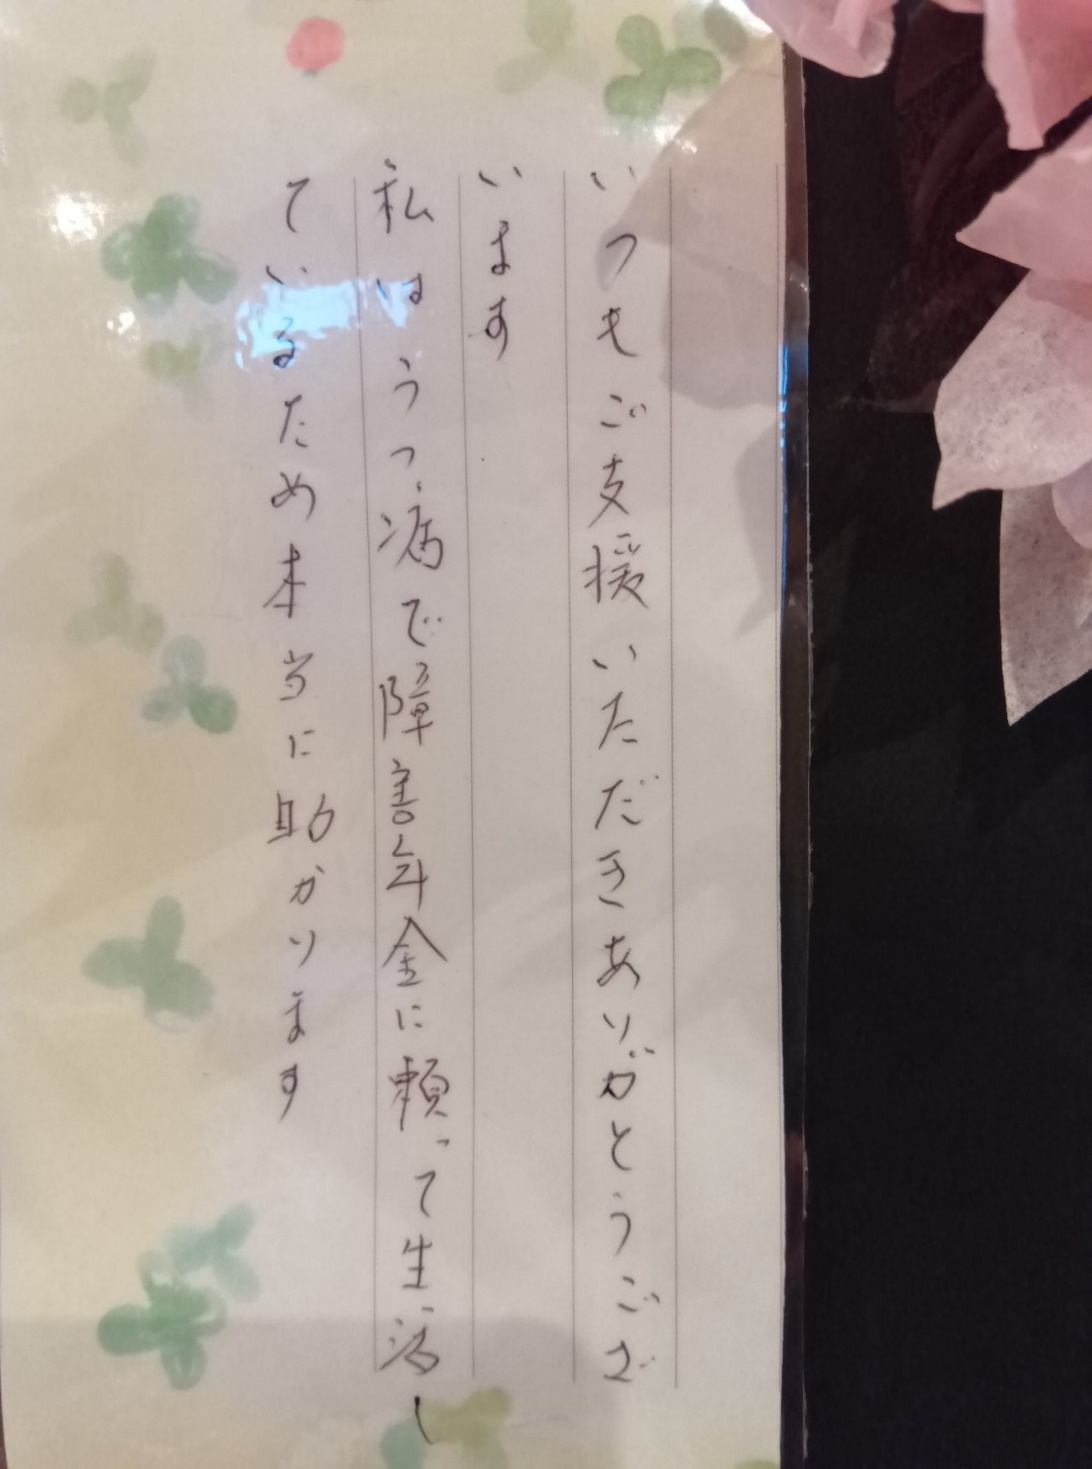 いつもご支援いただきありがとうござ
います
私はうつ病で障害年金に頼って生活し
ているため本当に助かります